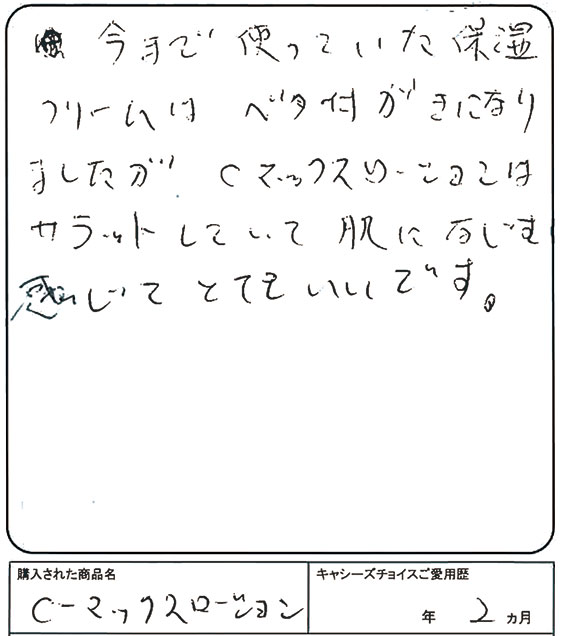 今まで使っていた保湿
クリームは ベタ付がきになり
ましたが Cマックスローションは
サラットしていて肌になじむ
感じで とてもいいです。
購入された商品名
C-マックスローション
キャシーズチョイスご愛用歴
年 2 ヵ月